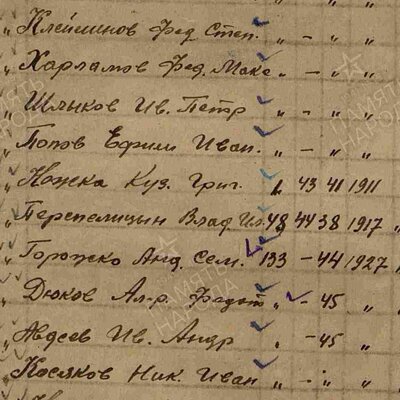 „ Клейшинов Фед Степ. „ – „ „
„ Харламов Фед. Макс „ – „ „
„ Шлыков Ив. Петр „ – „ „
„ Попов Ефим Иван. „ – „ „
„ Ножка Куз. Григ. „ 43 41 1911
„ Перепелицын Влад. 48 44 38 1917 „
„ Горожко Анд. Сем. 133 – 44 1927 „
„ Дюков Ал-р. Федот „ – 45 „
„ Авдеев Ив. Андр „ – 45 „
„ Косяков Ник. Иван „ – „ „
ПАМЯТЬ НАРОДА